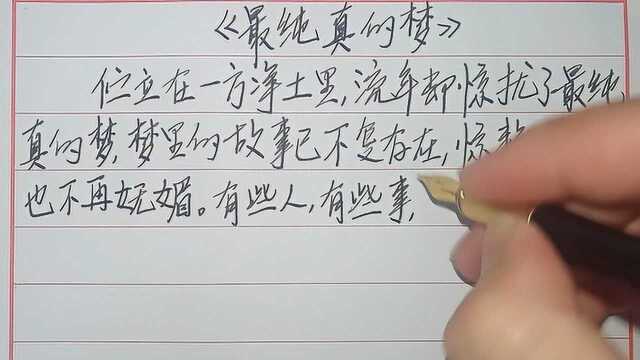 《最纯真的梦》
伫立在一方净土里,流年却惊扰了最纯
真的梦,梦里的故事已不复存在,惊
也不再妩媚。有些人,有些事,